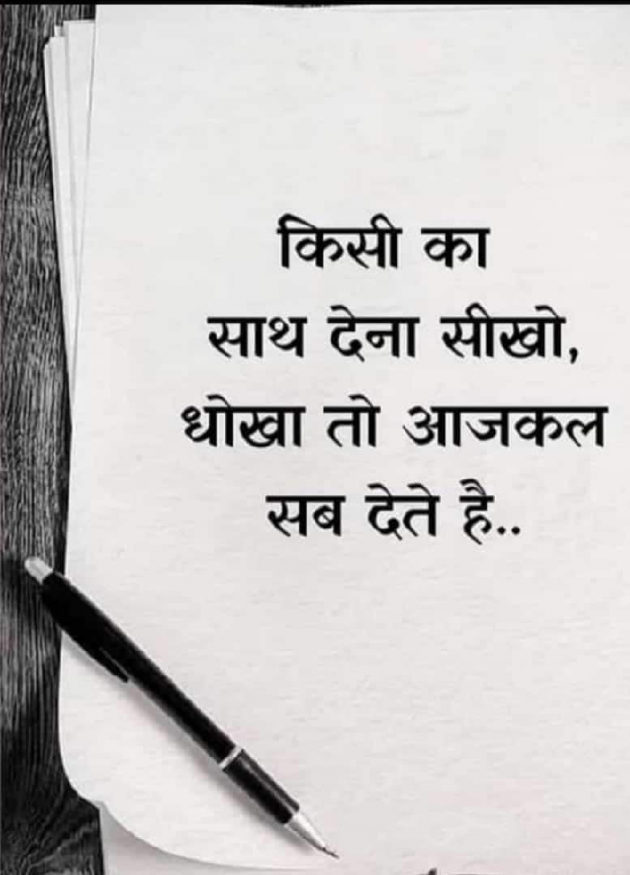 किसी का
साथ देना सीखो,
धोखा तो आजकल
सब देते है..